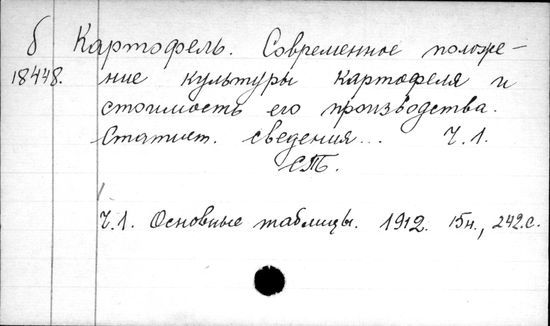 б Картофель. Современное положе-
18448. ние культуры картофеля и
стоимость его производства.
Статист. сведения... Ч.1.
СПб.
Ч.1. Основные таблицы. 1912. 15н., 242.с.